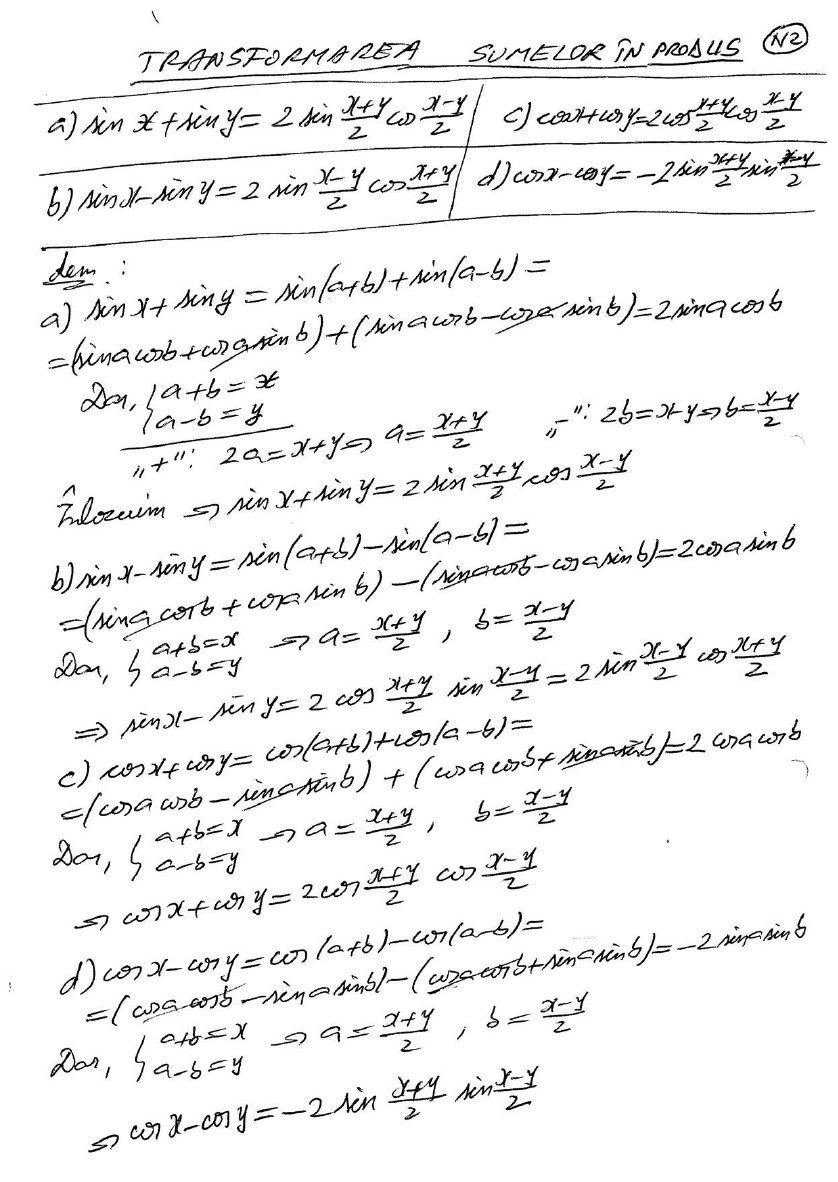 TRANSFORMAREA SUMELOR ÎN PRODUS N2
a) sin x + sin y = 2 sin (x+y)/2 cos (x-y)/2
c) cos x + cos y = 2 cos (x+y)/2 cos (x-y)/2
b) sin x - sin y = 2 sin (x-y)/2 cos (x+y)/2
d) cos x - cos y = -2 sin (x+y)/2 sin (x-y)/2
dem :
a) sin x + sin y = sin(a+b) + sin(a-b) =
= (sin a cos b + cos a sin b) + (sin a cos b - cos a sin b) = 2 sin a cos b
Dar, { a+b = x
a-b = y
„+": 2a = x+y ⇒ a = (x+y)/2 „-": 2b = x-y ⇒ b = (x-y)/2
Înlocuim ⇒ sin x + sin y = 2 sin (x+y)/2 cos (x-y)/2
b) sin x - sin y = sin(a+b) - sin(a-b) =
= (sin a cos b + cos a sin b) - (sin a cos b - cos a sin b) = 2 cos a sin b
Dar, { a+b = x
a-b = y ⇒ a = (x+y)/2 , b = (x-y)/2
⇒ sin x - sin y = 2 cos (x+y)/2 sin (x-y)/2 = 2 sin (x-y)/2 cos (x+y)/2
c) cos x + cos y = cos(a+b) + cos(a-b) =
= (cos a cos b - sin a sin b) + (cos a cos b + sin a sin b) = 2 cos a cos b
Dar, { a+b = x
a-b = y ⇒ a = (x+y)/2 , b = (x-y)/2
⇒ cos x + cos y = 2 cos (x+y)/2 cos (x-y)/2
d) cos x - cos y = cos(a+b) - cos(a-b) =
= (cos a cos b - sin a sin b) - (cos a cos b + sin a sin b) = -2 sin a sin b
Dar, { a+b = x
a-b = y ⇒ a = (x+y)/2 , b = (x-y)/2
⇒ cos x - cos y = -2 sin (x+y)/2 sin (x-y)/2